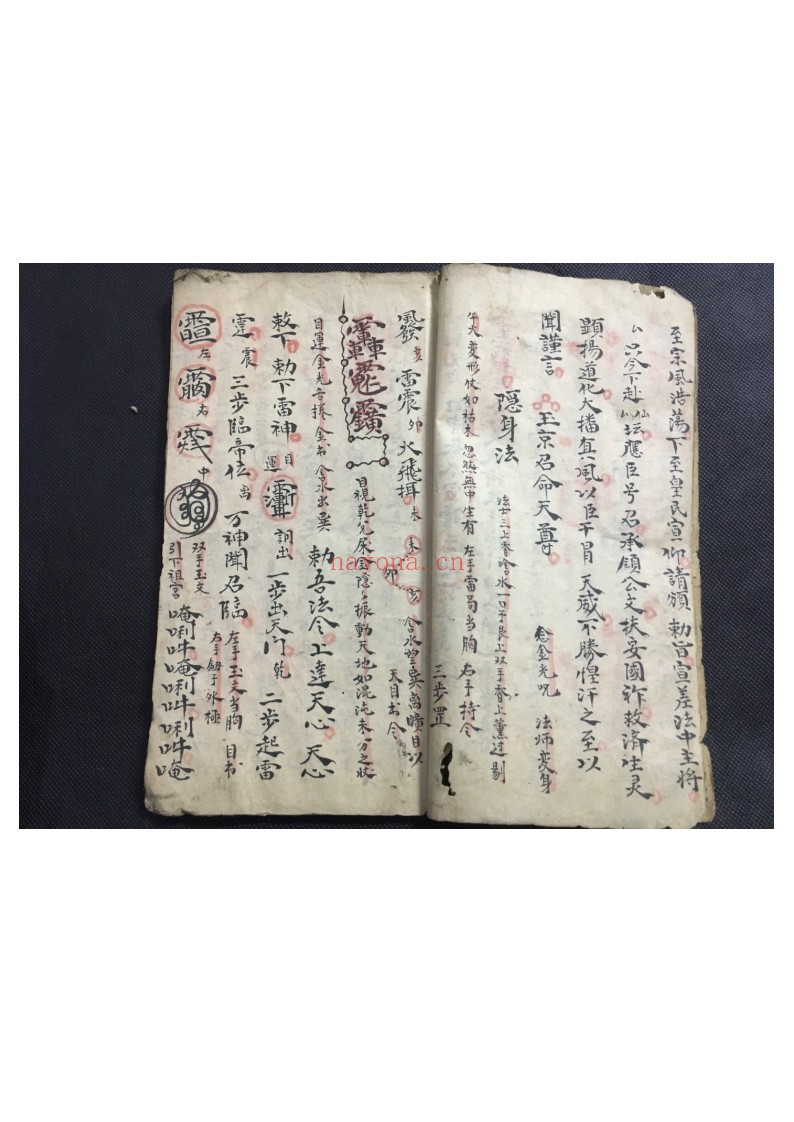 至宗風浩蕩下至皇民宣仰請頒勅旨宣差法中主將
厶只今下赴仙厶坛應臣号召承領公文扶安國祚救济生灵
顕揚道化大播真風以臣干冒天威不勝惶汗之至以
聞謹言 玉京召命天尊 念金光呪 法師変身
隠身法 法士三上香唅水一口于艮上双手香上薰过剔
午火変形仗如枯木忽然無中生有左手雷局当胸右手持令
三步罡
風發亥雷震卯火飛揖未 未卯亥 含水望巽离曠目以
天目书令
目視乾兌 隠隠振動天地如混沌未分之状
目運金光 捲金书含水出巽 勅吾法令上達天心天心
敕下勅下雷神目運 詞出一步出天門乾二步起雷
霆震三步臨帝位离万神聞召臨左手玉文当胸目书
右手劍于外極
左 右 中 双手玉文
引下祖宮 唵唎吽唵唎吽唎吽唵
nayona.cn